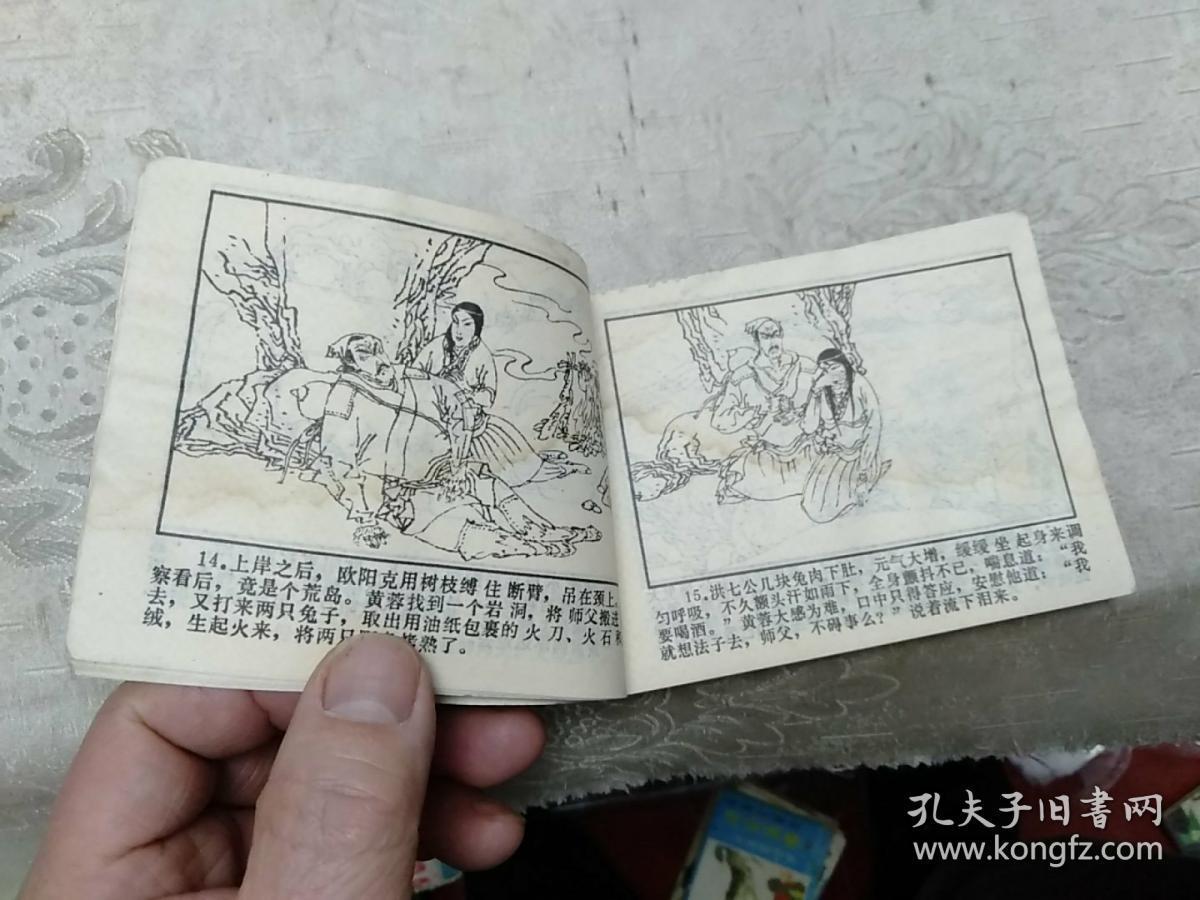 14.上岸之后，欧阳克用树枝缚住断臂，吊在颈上。
察看后，竟是个荒岛。黄蓉找到一个岩洞，将师父搬进
去，又打来两只兔子，取出用油纸包裹的火刀、火石和
绒，生起火来，将两只熟了。
15.洪七公几块兔肉下肚，元气大增，缓缓坐起身来调
匀呼吸，不久额头汗如雨下，全身颤抖不已，喘息道：“我
要喝酒。”黄蓉大感为难，口中只得答应，安慰他道：“我
就想法子去，师父，不碍事么？”说着流下泪来。
孔夫子旧書网
www.kongfz.com